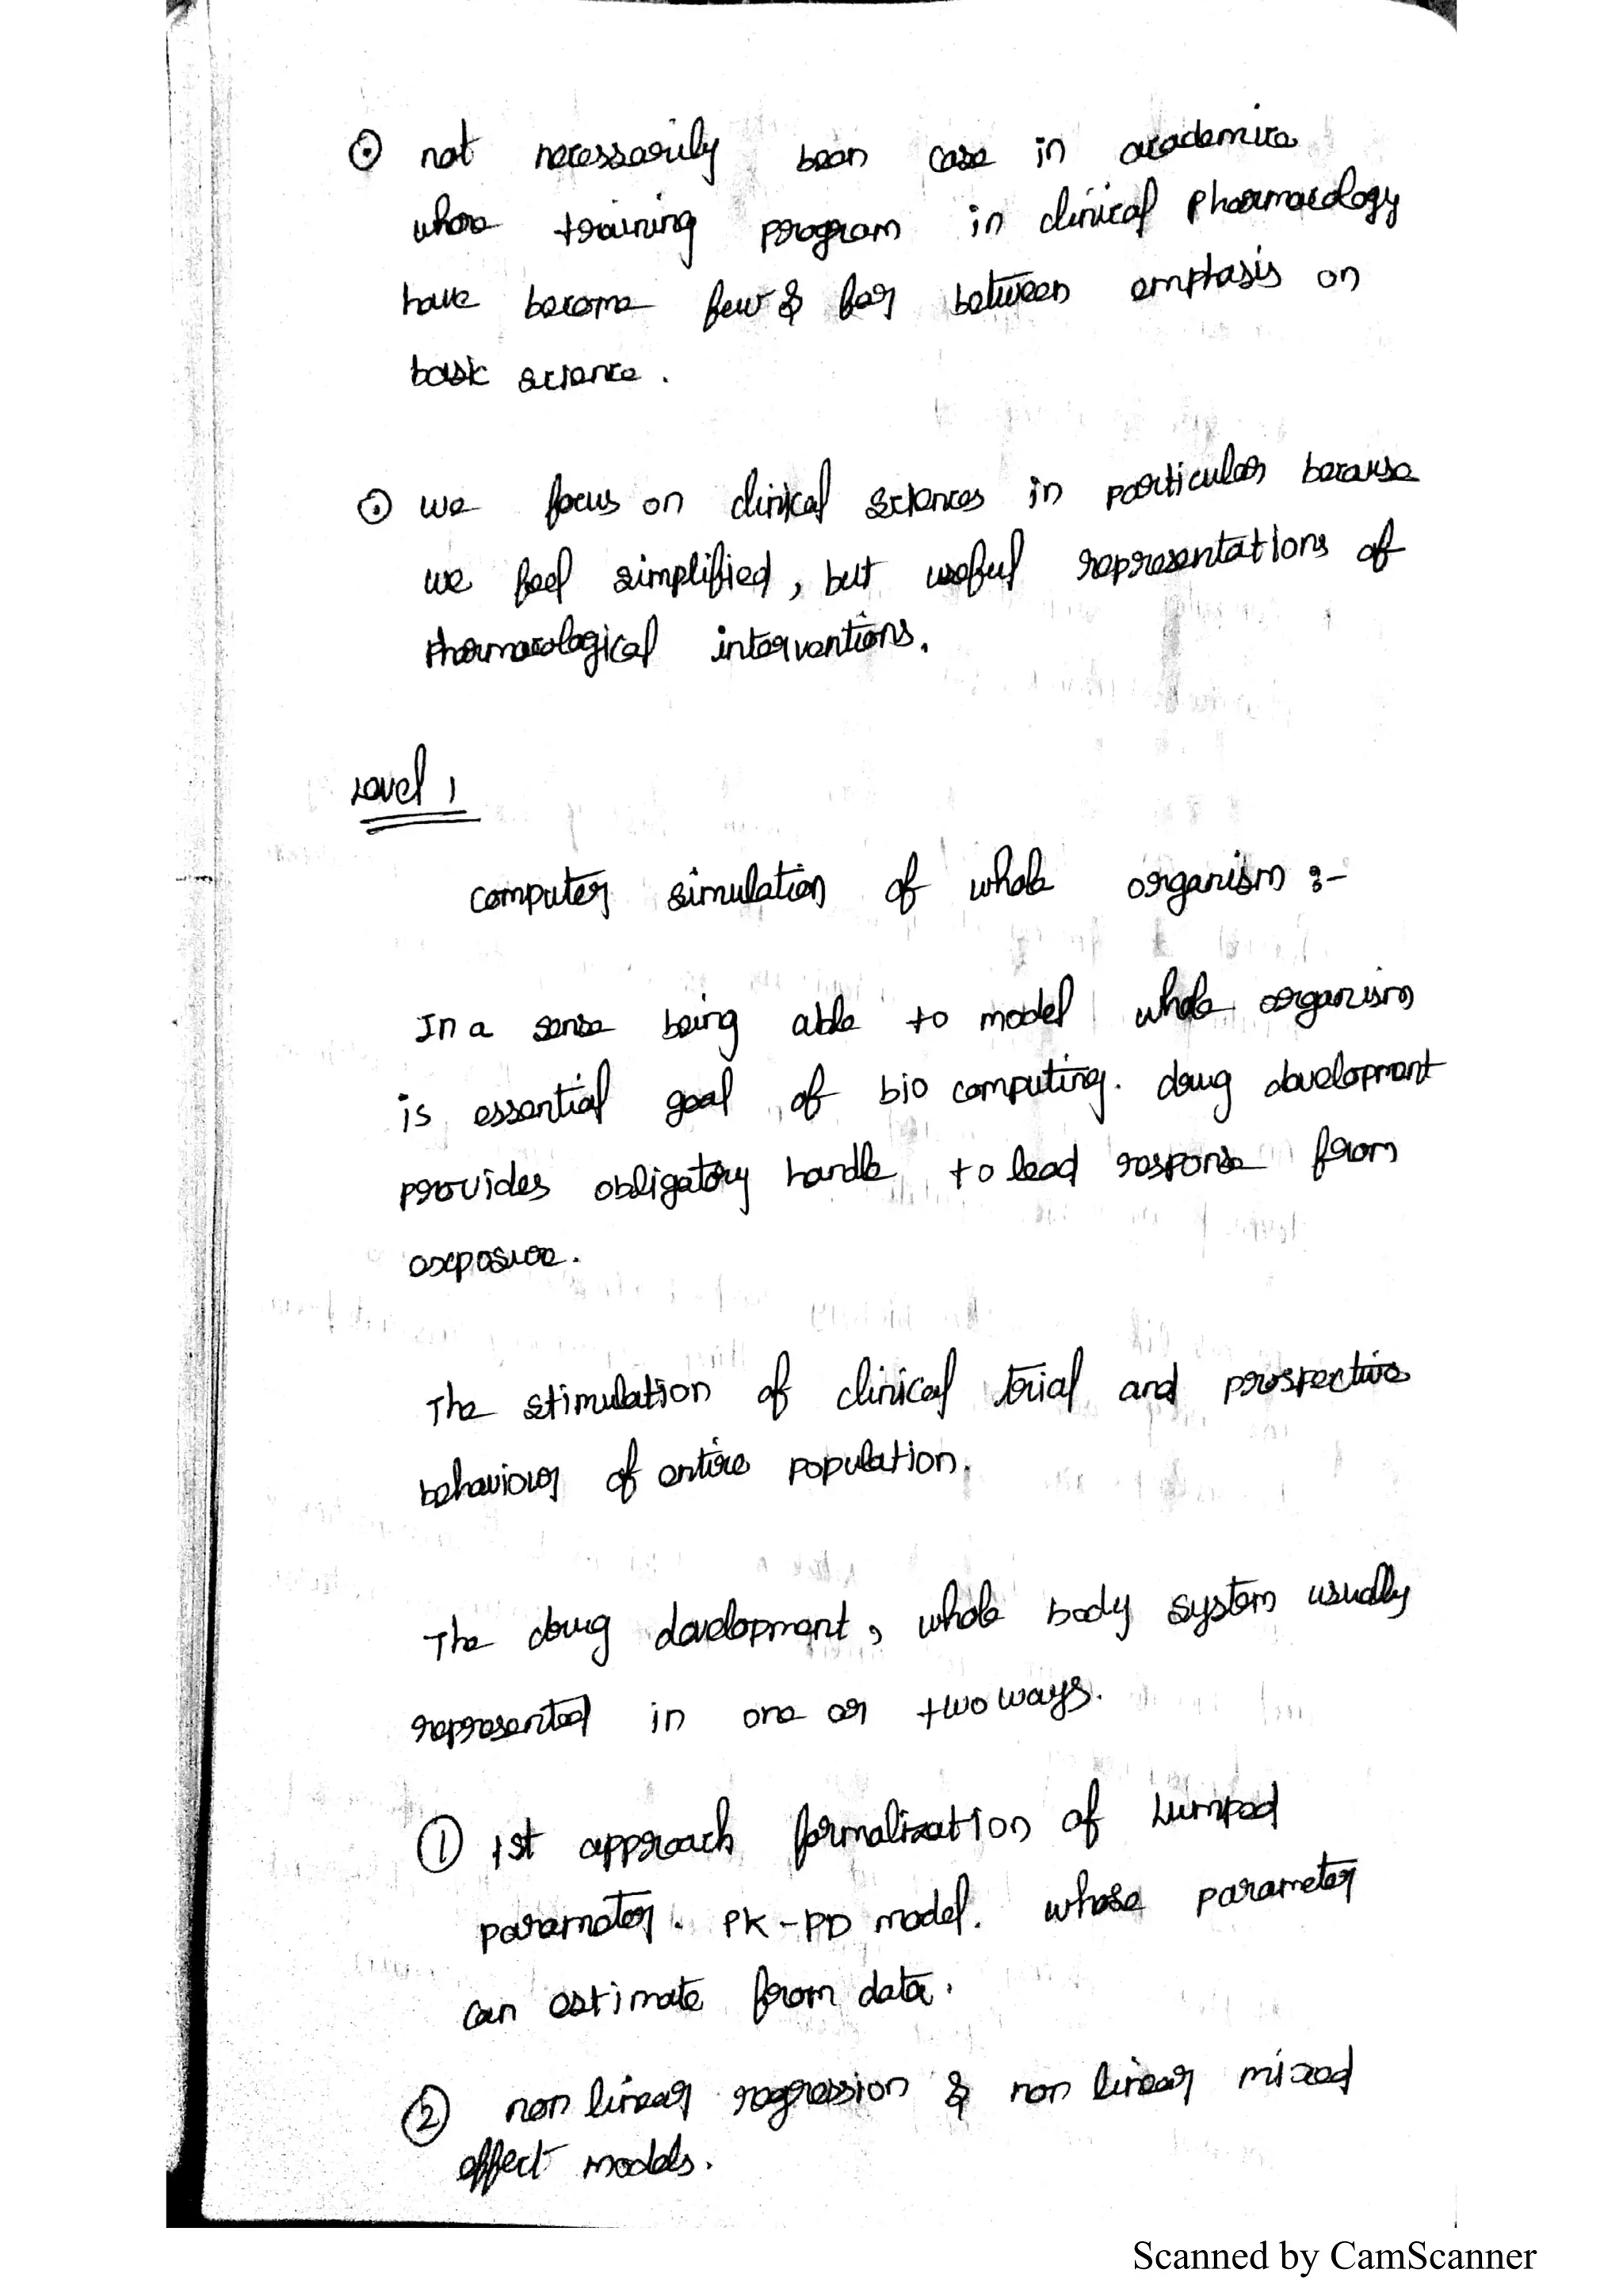 ⊙ not necessarily been case in academica
where training program in clinical Pharmacology
have become few & far between emphasis on
basic science.
⊙ we focus on clinical sciences in particular because
we feel simplified, but useful representations of
Pharmacological interventions.
Level 1
computer simulation of whole organism :-
In a sense being able to model whole organism
is essential goal of bio computing. drug development
provides obligatory handle to lead response from
exposure.
The stimulation of clinical trial and prospective
behaviour of entire population.
The drug development, whole body system usually
represented in one or two ways.
① 1st approach formalization of Lumped
parameter. PK-PD model. whose parameter
can estimate from data.
② non linear regression & non linear mixed
effect models.
Scanned by CamScanner